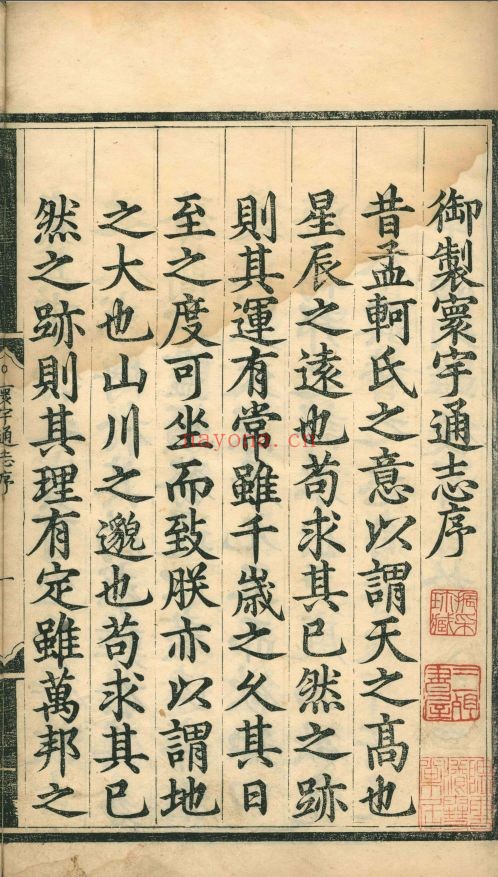 御製寰宇通志序
昔孟軻氏之意以謂天之髙也
星辰之遠也苟求其已然之跡
則其運有常雖千歳之久其日
至之度可坐而致朕亦以謂地
之大也山川之邈也苟求其已
然之跡則其理有定雖萬邦之
寰宇通志序
一